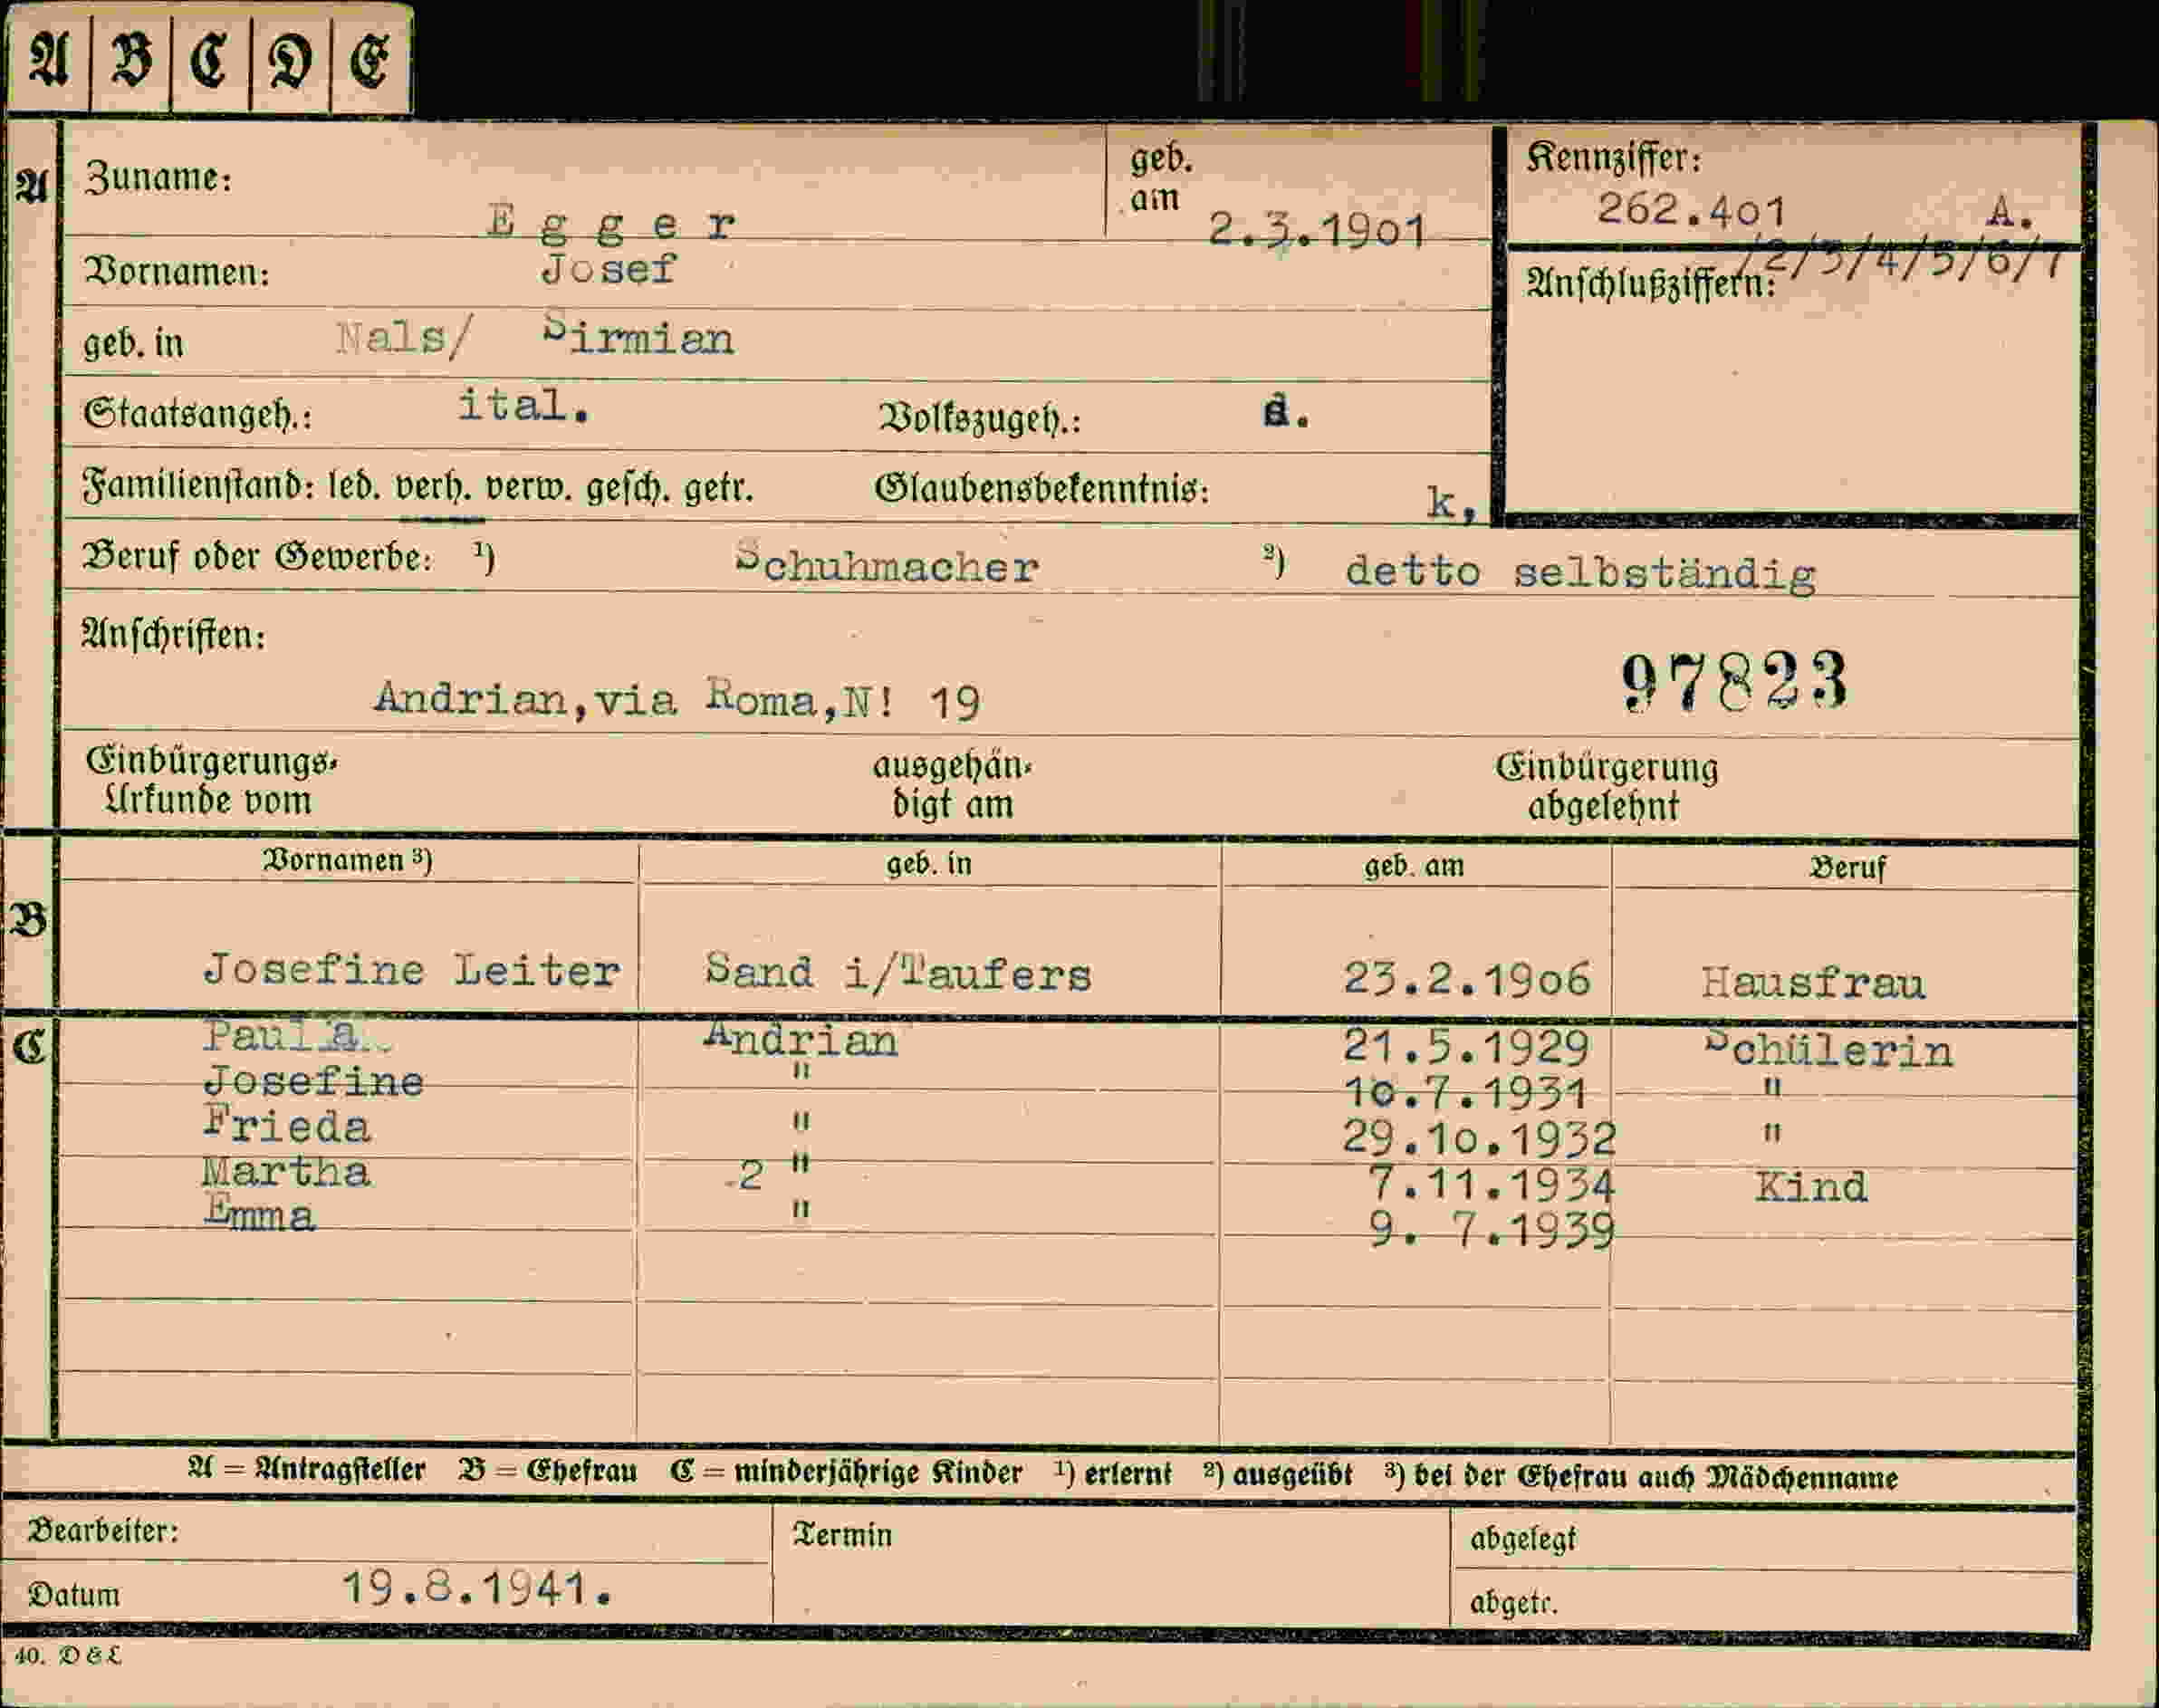 A B C D E
A Zuname: E g g e r geb. am 2.3.1901
Kennziffer: 262.401 A.
Anschlußziffern: /2/3/4/5/6/7
Vornamen: Josef
geb. in Nals/ Sirmian
Staatsangeh.: ital. Volkszugeh.: d.
Familienstand: led. verh. verw. gesch. getr. Glaubensbekenntnis: k,
Beruf oder Gewerbe: ¹) Schuhmacher ²) detto selbständig
Anschriften:
97823
Andrian,via Roma,N! 19
Einbürgerungs-Urkunde vom ausgehändigt am Einbürgerung abgelehnt
Vornamen ³) geb. in geb. am Beruf
B Josefine Leiter Sand i/Taufers 23.2.1906 Hausfrau
C Paula Andrian 21.5.1929 Schülerin
Josefine " 10.7.1931 "
Frieda " 29.10.1932 "
Martha 2 " 7.11.1934 Kind
Emma " 9. 7.1939
A = Antragsteller B = Ehefrau C = minderjährige Kinder ¹) erlernt ²) ausgeübt ³) bei der Ehefrau auch Mädchenname
Bearbeiter: Termin abgelegt
Datum 19.8.1941. abgetr.
40. D & L